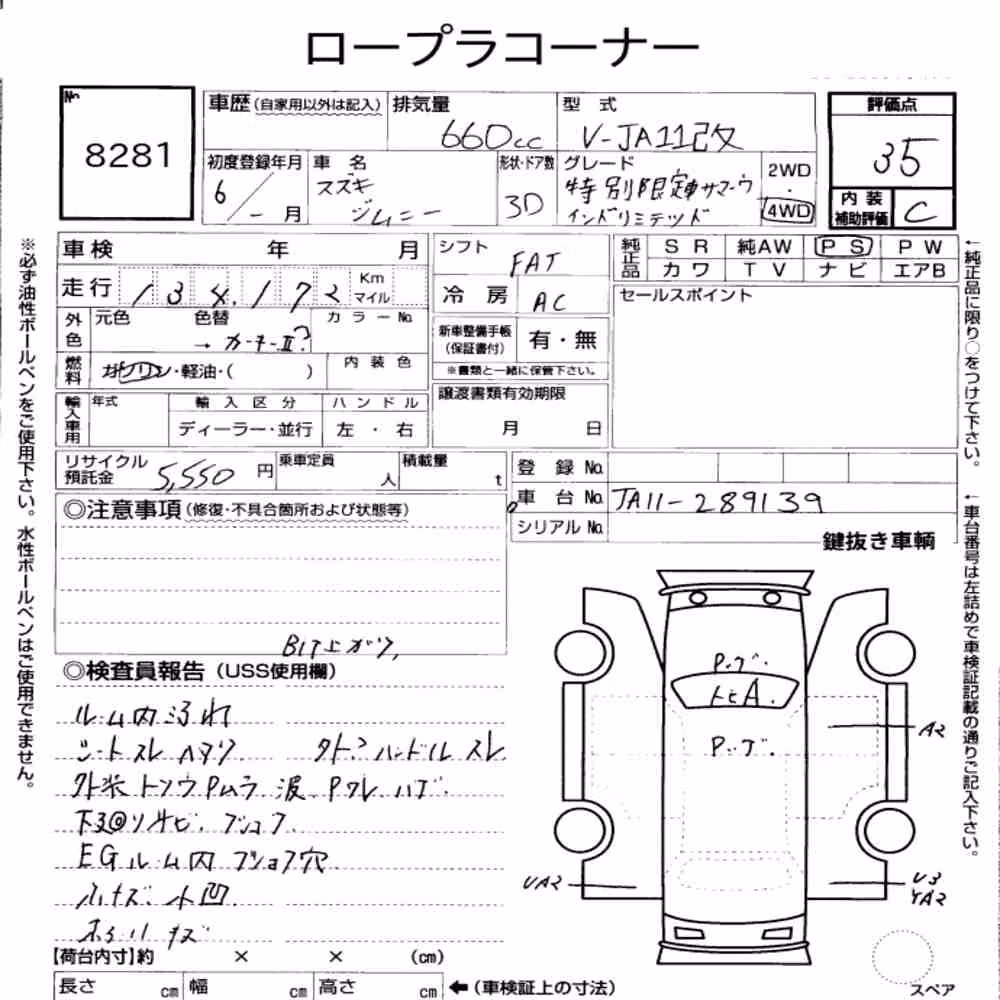 ロープラコーナー
No. 8281
車歴(自家用以外は記入)
排気量 660cc
型式 V-JA11改
評価点 35
初度登録年月 6/-月
車名 スズキ ジムニー
形状・ドア数 3D
グレード 特別限定車サマーウインドリミテッド
2WD・4WD
内装補助評価 C
車検 年 月
走行 134,172 Km マイル
シフト FAT
冷房 AC
純正品 SR 純AW PS PW
カワ TV ナビ エアB
外色 元色 色替 カラーNo.
燃料 ガソリン・軽油・( ) 内装色
新車整備手帳(保証書付) 有・無
※書類と一緒に保管下さい。
セールスポイント
輸入車用 年式 輸入区分 ハンドル
ディーラー・並行 左・右
譲渡書類有効期限
月 日
リサイクル預託金 5,550円
乗車定員 人
積載量 t
登録No.
車台No. JA11-289139
シリアルNo.
◎注意事項(修復・不具合箇所および状態等)
鍵抜き車輌
◎検査員報告(USS使用欄)
ルーム内汚れ
シートスレ ハンドルスレ
下
EGルーム内 穴
小凹
キズ
P.ブ.
トビA.
P.ブ.
A2
UA2
U3
YA2
スペア
【荷台内寸】約 × × (cm)
長さ cm 幅 cm 高さ cm ←(車検証上の寸法)
※必ず油性ボールペンをご使用下さい。水性ボールペンはご使用できません。
←純正品に限り○をつけて下さい。
←車台番号は左詰めで車検証記載の通りご記入下さい。